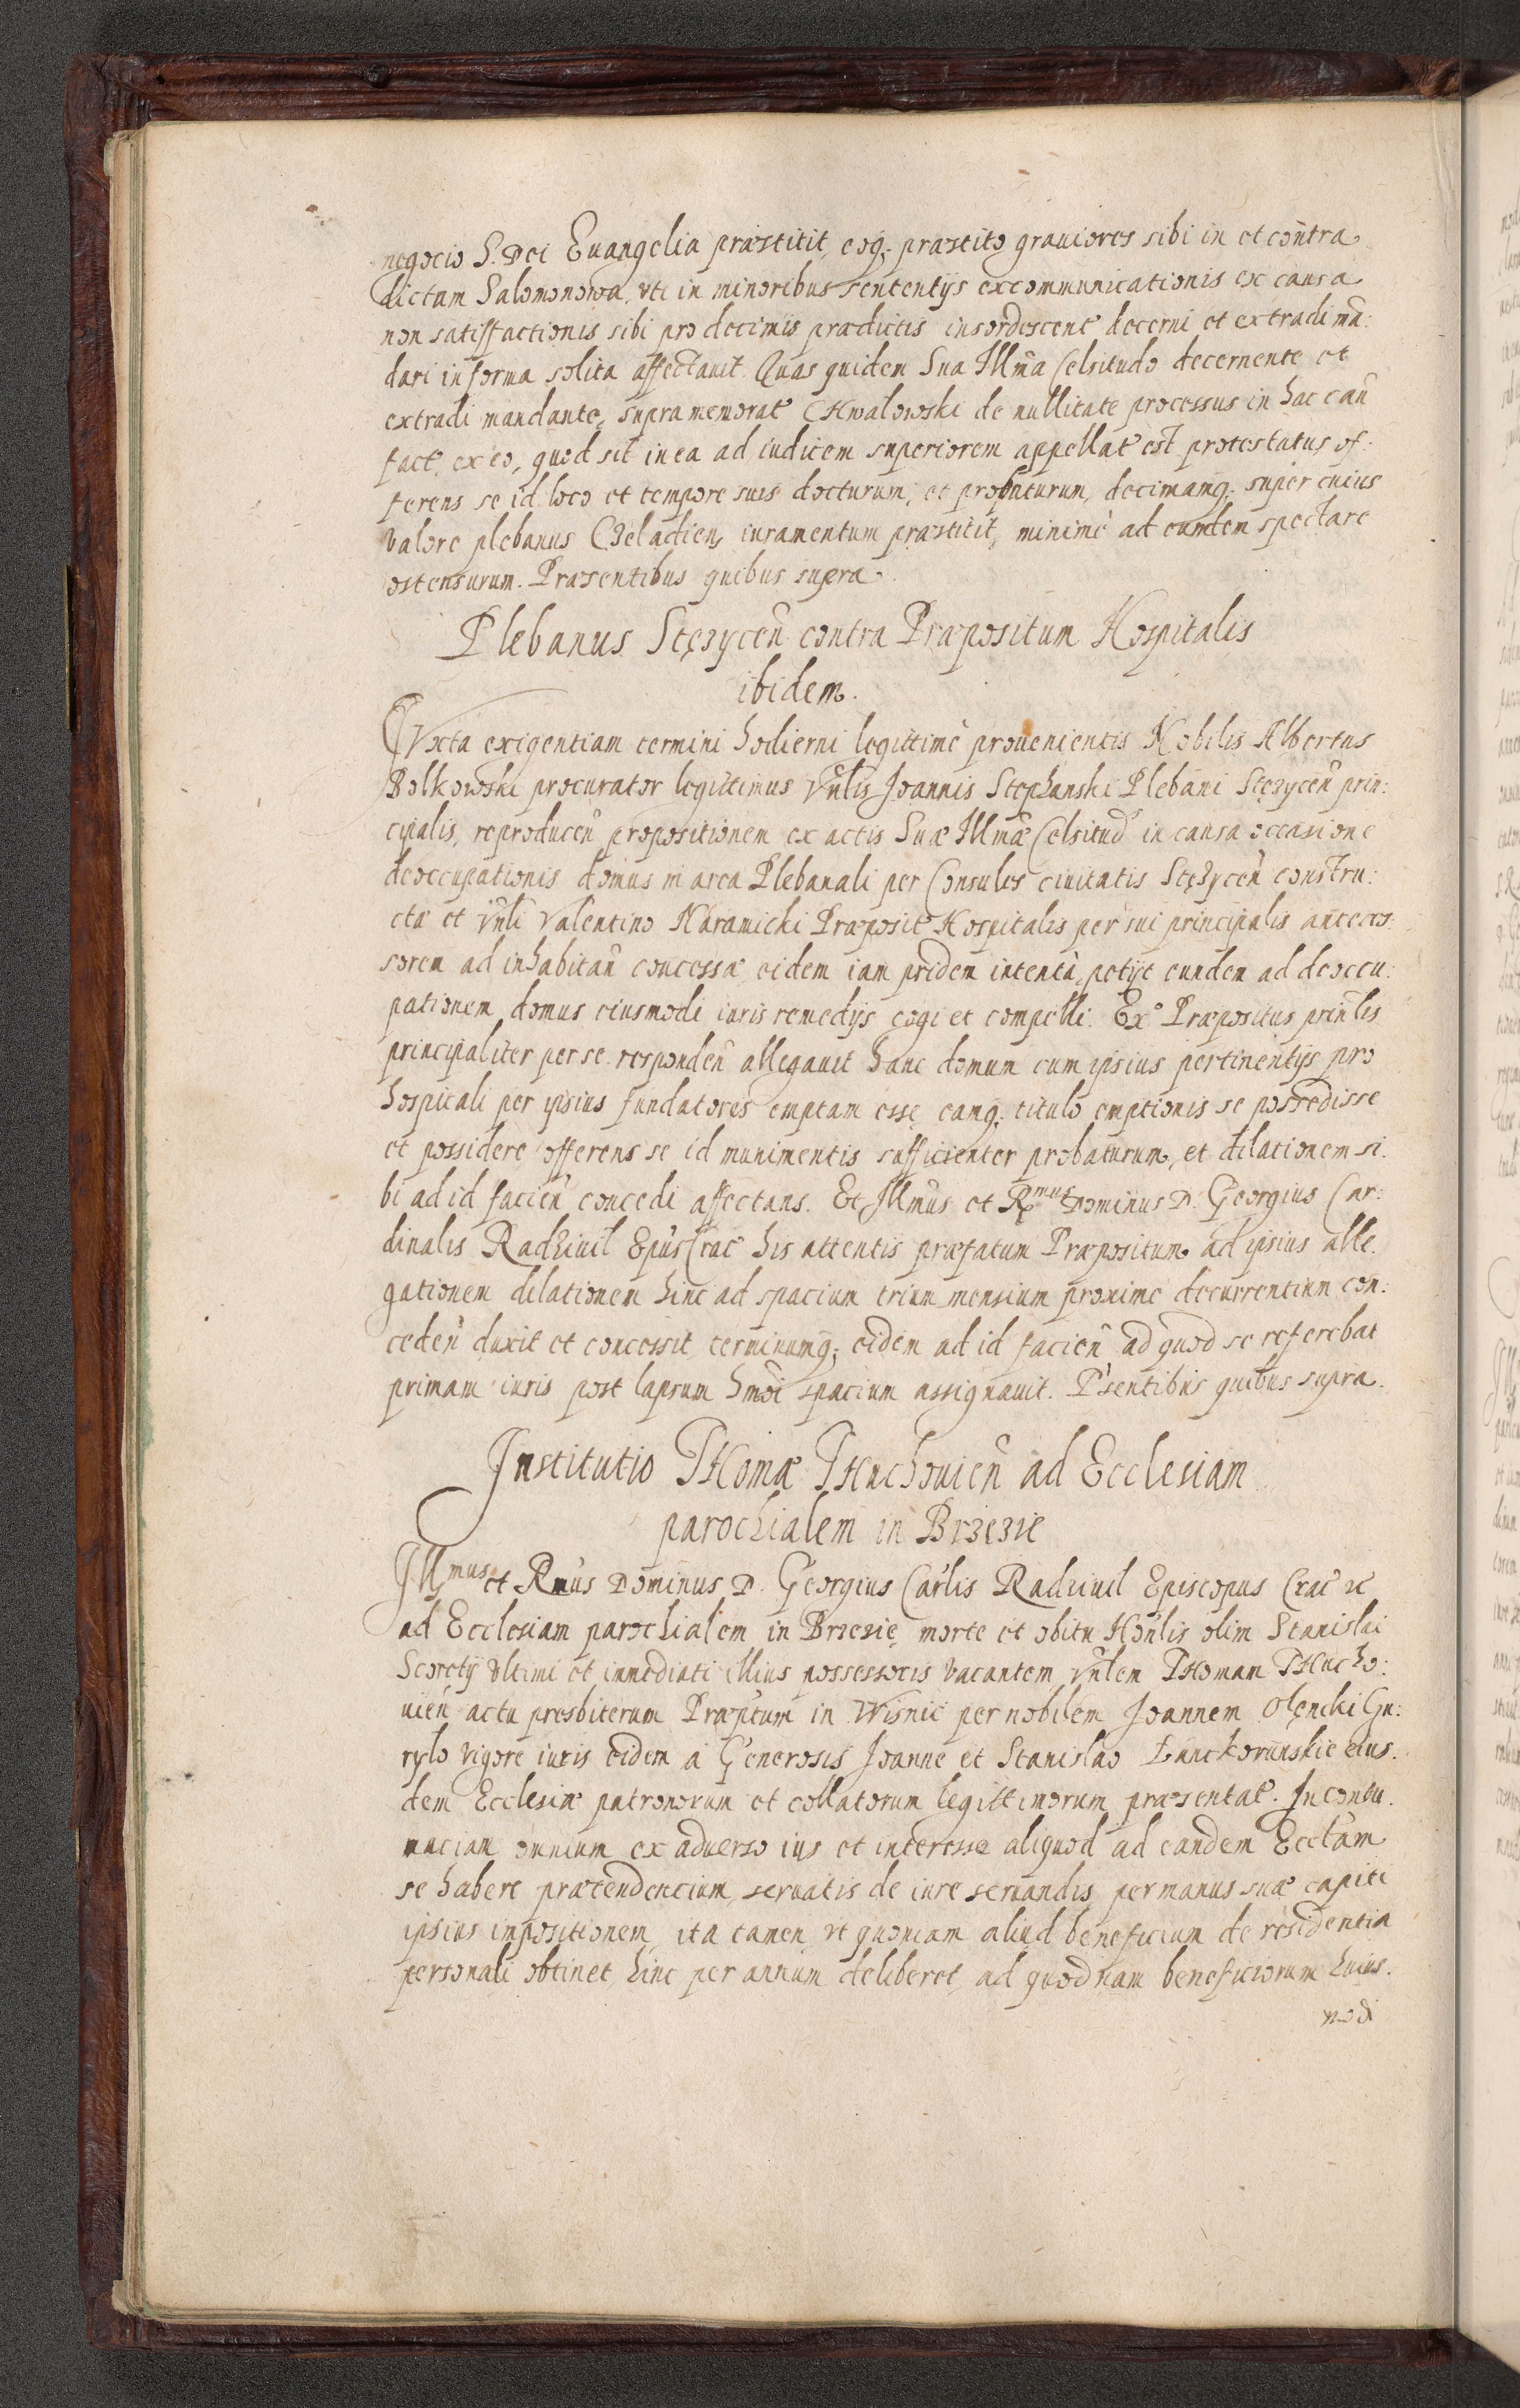 negocio S. Dei Euangelia præstitit, eoq; præstito grauiores sibi in et contra
dictam Salomonowa, vti in minoribus sententijs excommunicationis ex causa
non satisffactionis sibi pro decimis prædictis insordescene decerni et extradi mā:
dari in forma solita affectauit. Quas quidem Sua Illm̃a Celsitudo decernente et
extradi mandante, supra memorat CHwalowski de nullitate processus in hac cau
fact ex eo, quod sit in ea ad iudicem superiorem appellat est protestatus of:
ferens se id loco et tempore suis docturum, et probaturum, decimamq; super cuius
valore plebanus Czeladien iuramentum præstitit, minimè ad eundem spectare
ostensurum. Præsentibus quibus supra.
Plebanus Stęzyceñ contra Præpositum Hospitalis
ibidem.
IVxta exigentiam termini hodierni legittimè prouenientis Nobilis Albertus
Bolkowski procurator legittimus Vñlis Joannis Stephanski Plebani Stęzyceñ prin:
cipalis, reproduceñ propositionem ex actis Suæ Illmæ Celsitud in causa occasione
deoccupationis domus in area Plebanali per Consules ciuitatis Stęzyceñ constru:
ctæ et Vñli Valentino Naramicki Præposit Hospitalis per sui principalis anteces:
sorem ad inhabitañ concessæ eidem iam pridem intentà, petijt eundem ad deoccu:
pationem domus eiusmodi iuris remedijs cogi et compelli. Exº Præpositus prinlis
principaliter per se respondeñ allegauit hanc domum cum ipsius pertinentijs pro
hospitali per ipsius fundatores emptam esse, eamq; titulo emptionis se possedisse
et possidere offerens se id munimentis sufficienter probaturum, et dilationem si:
bi ad id facieñ concedi affectans. Et Illmūs et Rmus Dominus D. Georgius Car:
dinalis Radziuil Epūs Crac his attentis præfatum Præpositum ad ipsius alle:
gationem dilationem hinc ad spacium trium mensium proxime decurrentium con:
cedeñ duxit et concessit, terminumq; eidem ad id facieñ ad quod se referebat
primam iuris post lapsum hm̃oi spacium assignauit. P̃sentibus quibus supra.
Institutio THomæ THuchouieñ ad Ecclesiam
parochialem in Brzezie
Illmus et Rmūs Dominus D. Georgius Carlis Radziuil Episcopus Crac etc
ad Ecclesiam parochialem in Brzezie, morte et obitu Hoñlis olim Stanislai
Scoretij vltimi et immediati illius possessoris vacantem Vñlem THomam THucho:
uieñ actu presbiterum Præptum in Wisnic per nobilem Joannem Olęncki Gu:
rylo vigore iuris eidem à Generosis Joanne et Stanislao Lanckorunskie eius:
dem Ecclesiæ patronorum et collatorum legittimorum præsentat. In contu:
maciam omnium ex aduerso ius et interesse aliquod ad eandem Eccl̃am
se habere prætendencium, seruatis de iure seruandis per manus suæ capiti
ipsius impositionem, ita tamen vt quoniam aliud beneficium de residentia
personali obtinet hinc per annum deliberet, ad quodnam beneficiorum huius:
modi